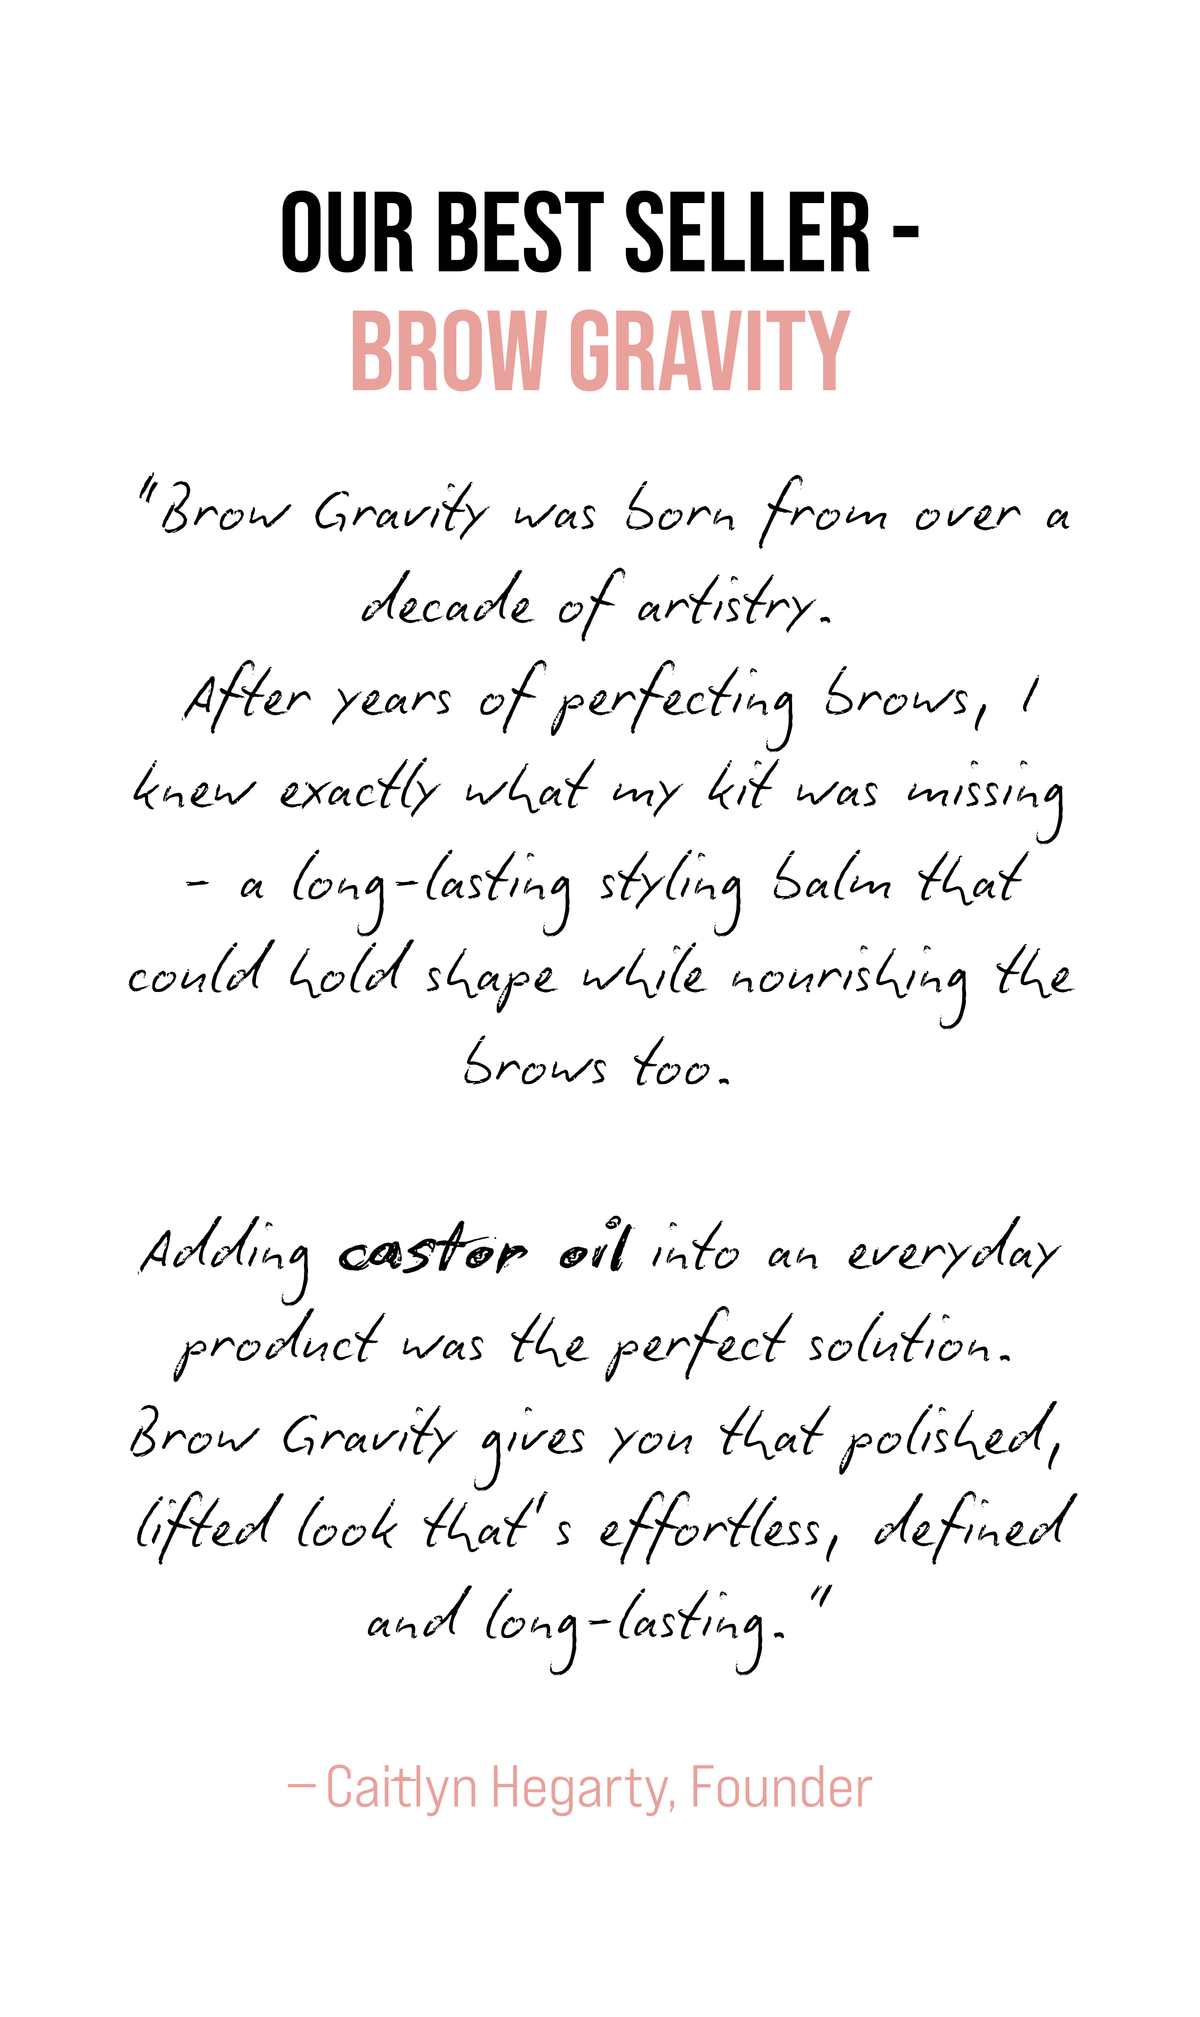 OUR BEST SELLER -
BROW GRAVITY
"Brow Gravity was born from over a
decade of artistry.
After years of perfecting brows, I
knew exactly what my kit was missing
- a long-lasting styling balm that
could hold shape while nourishing the
brows too.
Adding castor oil into an everyday
product was the perfect solution.
Brow Gravity gives you that polished,
lifted look that's effortless, defined
and long-lasting."
– Caitlyn Hegarty, Founder